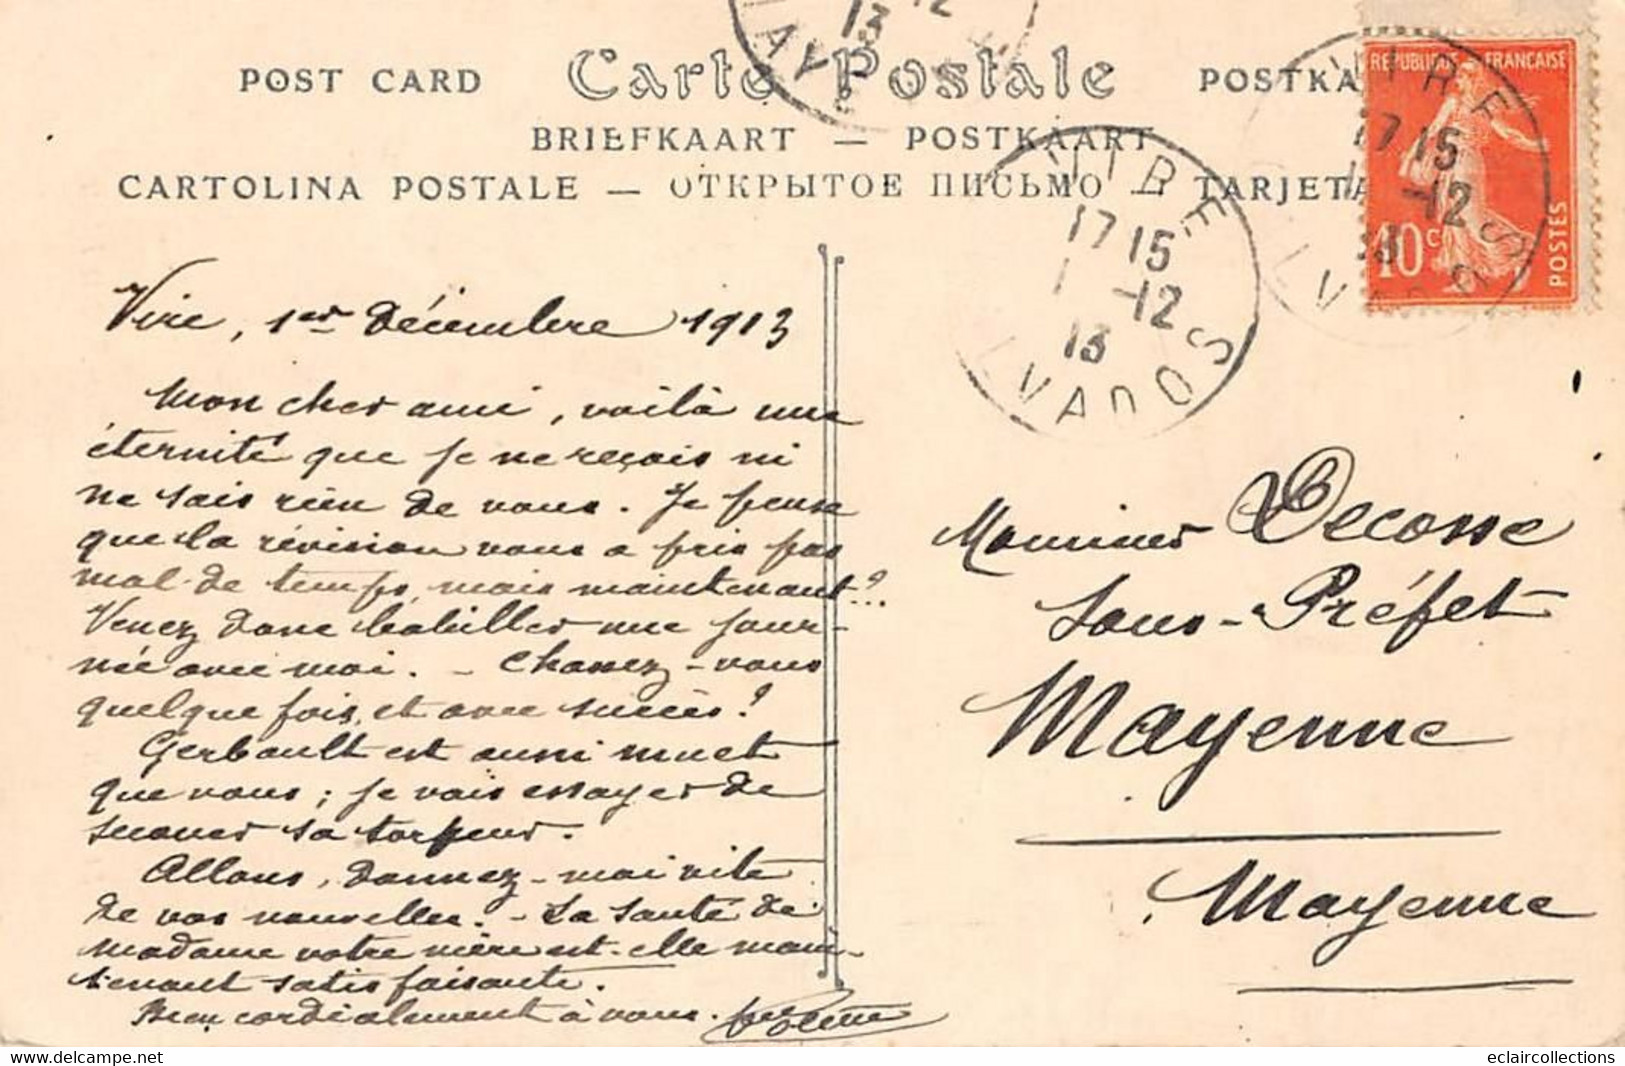 POST CARD Carte Postale POSTKA
BRIEFKAART — POSTKAART
CARTOLINA POSTALE — ОТКРЫТОЕ ПИСЬМО — TARJETA
REPUBLIQUE FRANÇAISE
10 c
POSTES
VIRE
17 15
1 -12
13
LVADOS
VIRE
17 15
1 -12
13
LVADOS
-12
13
Vire, 1er décembre 1913
Mon cher ami, voilà une
éternité que je ne reçois ni
ne sais rien de vous. Je pense
que la révision vous a pris pas
mal de temps, mais maintenant?..
Venez donc babiller une jour-
née avec moi. - Chassez-vous
quelque fois, et avec succès?
Gerbault est aussi muet
que vous; je vais essayer de
secouer sa torpeur.
Allons, donnez-moi vite
de vos nouvelles. - La santé de
madame votre mère est-elle main-
tenant satisfaisante.
Bien cordialement à vous.
Monsieur Decosse
Sous-Préfet
Mayenne
Mayenne
www.delcampe.net
eclaircollections